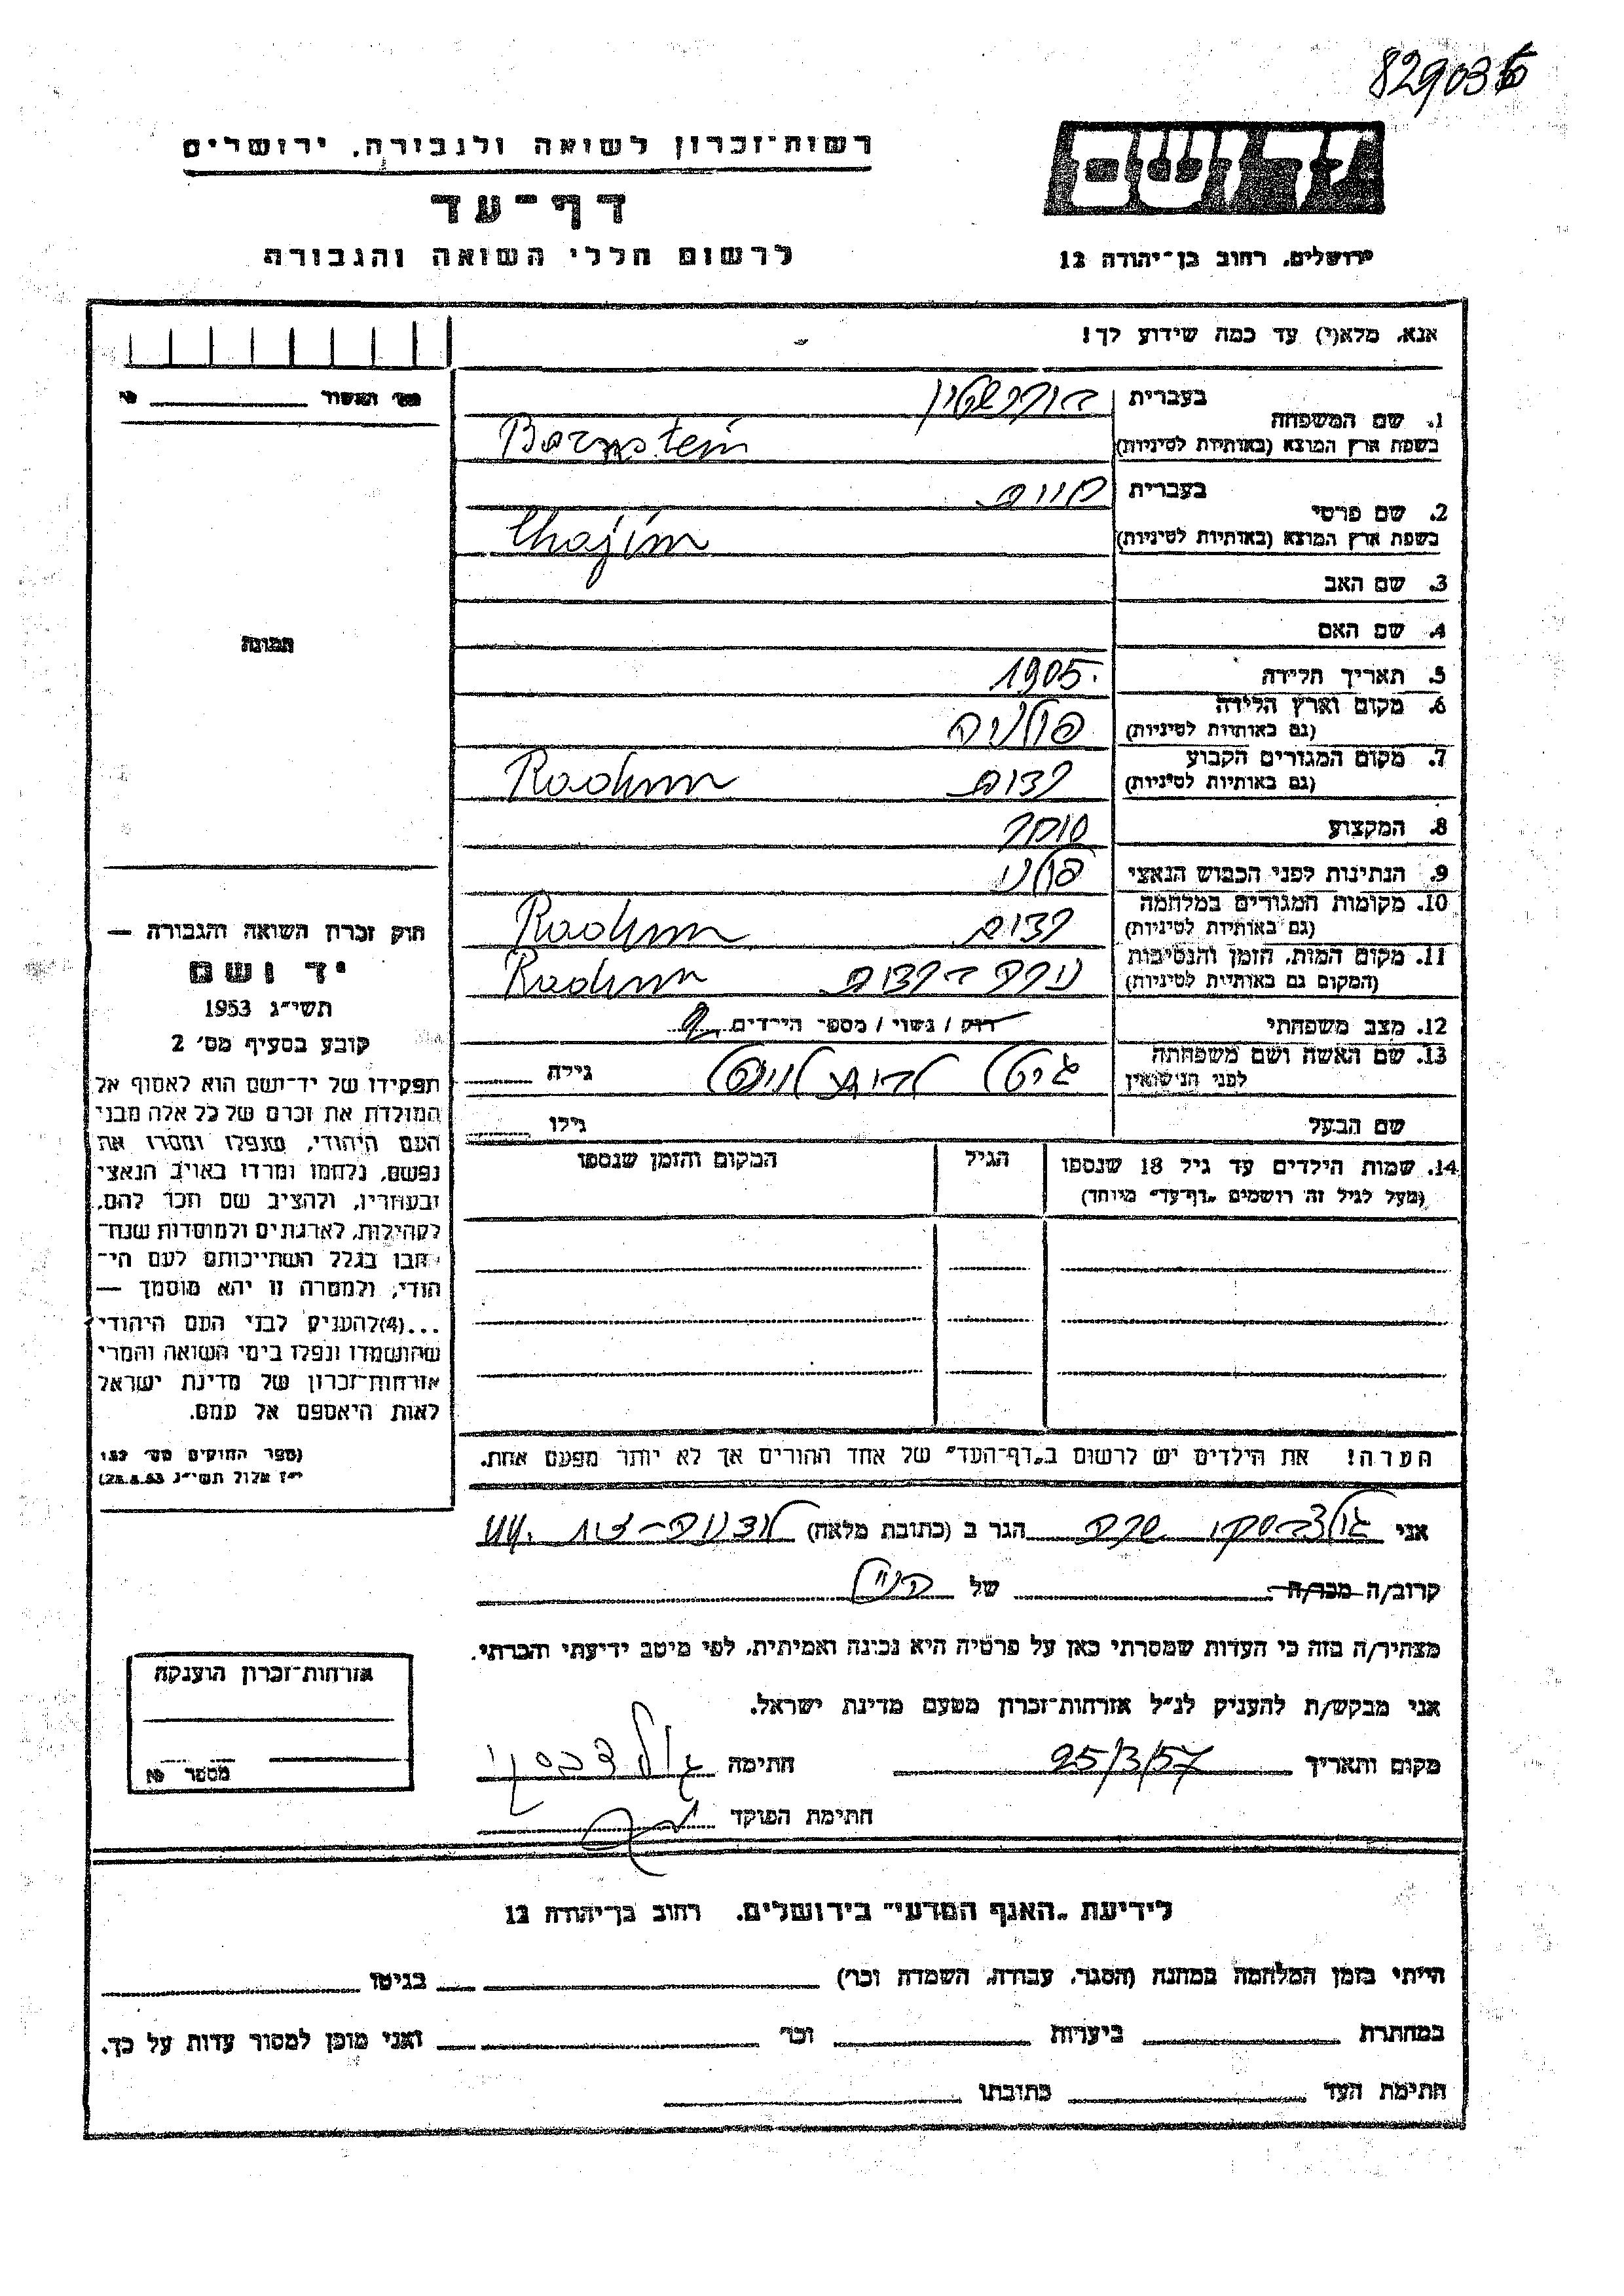 829035
רשות־זכרון לשואה ולגבורה, ירושלים
דף־עד
לרשום חללי השואה והגבורה
יד ושם
ירושלים, רחוב בן־יהודה 12
אנא, מלא(י) עד כמה שידוע לך!
מס' האשור
1. שם המשפחה
בעברית בורנשטיין
בשפת ארץ המוצא (באותיות לטיניות) Bornstein
2. שם פרטי
בעברית חיים
בשפת ארץ המוצא (באותיות לטיניות) Chajim
3. שם האב
4. שם האם
5. תאריך הלידה 1905.
6. מקום וארץ הלידה
(גם באותיות לטיניות) פולניה
7. מקום המגורים הקבוע
(גם באותיות לטיניות) רדום Radom
8. המקצוע סוחר
9. הנתינות לפני הכבוש הנאצי פולני
10. מקומות המגורים במלחמה
(גם באותיות לטיניות) רדום Radom
11. מקום המות, הזמן והנסיבות
(המקום גם באותיות לטיניות) נורה ברדום Radom
12. מצב משפחתי רוק / נשוי / מספר הילדים 2
13. שם האשה ושם משפחתה
לפני הנישואין גיטל גילה
שם הבעל גילו
14. שמות הילדים עד גיל 18 שנספו
(מעל לגיל זה רושמים „דף־עד” מיוחד)
הגיל
המקום והזמן שנספו
הערה! את הילדים יש לרשום ב„דף־העד” של אחד ההורים אך לא יותר מפעם אחת.
תמונה
חוק זכרון השואה והגבורה —
יד ושם
תשי״ג 1953
קובע בסעיף מס' 2
תפקידו של יד־ושם הוא לאסוף אל
המולדת את זכרם של כל אלה מבני
העם היהודי, שנפלו ומסרו את
נפשם, נלחמו ומרדו באויב הנאצי
ובעוזריו, ולהציב שם וזכר להם,
לקהילות, לארגונים ולמוסדות שנח־
רבו בגלל השתייכותם לעם הי־
הודי, ולמטרה זו יהא מוסמך —
...(4)להעניק לבני העם היהודי
שהושמדו ונפלו בימי השואה והמרי
אזרחות־זכרון של מדינת ישראל
לאות היאספם אל עמם.
(ספר החוקים מס' 132
י״ז אלול תשי״ג 28.8.53)
אני גולדברסקי שרה הגר ב (כתובת מלאה)
קרוב/ה מכר/ה של הנ״ל
מצהיר/ה בזה כי העדות שמסרתי כאן על פרטיה היא נכונה ואמיתית, לפי מיטב ידיעתי והכרתי.
אני מבקש/ת להעניק לנ״ל אזרחות־זכרון מטעם מדינת ישראל.
מקום ותאריך 25/3/57 חתימה
חתימת הפוקד
אזרחות־זכרון הוענקה
מספר
לידיעת „האגף המדעי” בירושלים, רחוב בן־יהודה 12
הייתי בזמן המלחמה במחנה (הסגר, עבודה, השמדה וכו') בגיטו
במחתרת ביערות וכו' ואני מוכן למסור עדות על כך.
חתימת העד כתובתו